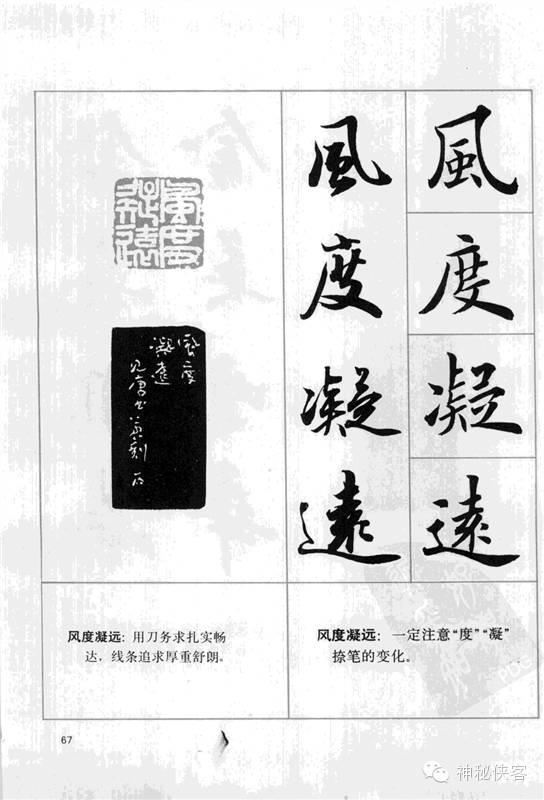 風度凝遠
風度凝遠
風度
凝遠
風度
凝遠
見唐書
风度凝远：一定注意“度”“凝”
捺笔的变化。
风度凝远：用刀务求扎实畅
达，线条追求厚重舒朗。
67
神秘侠客